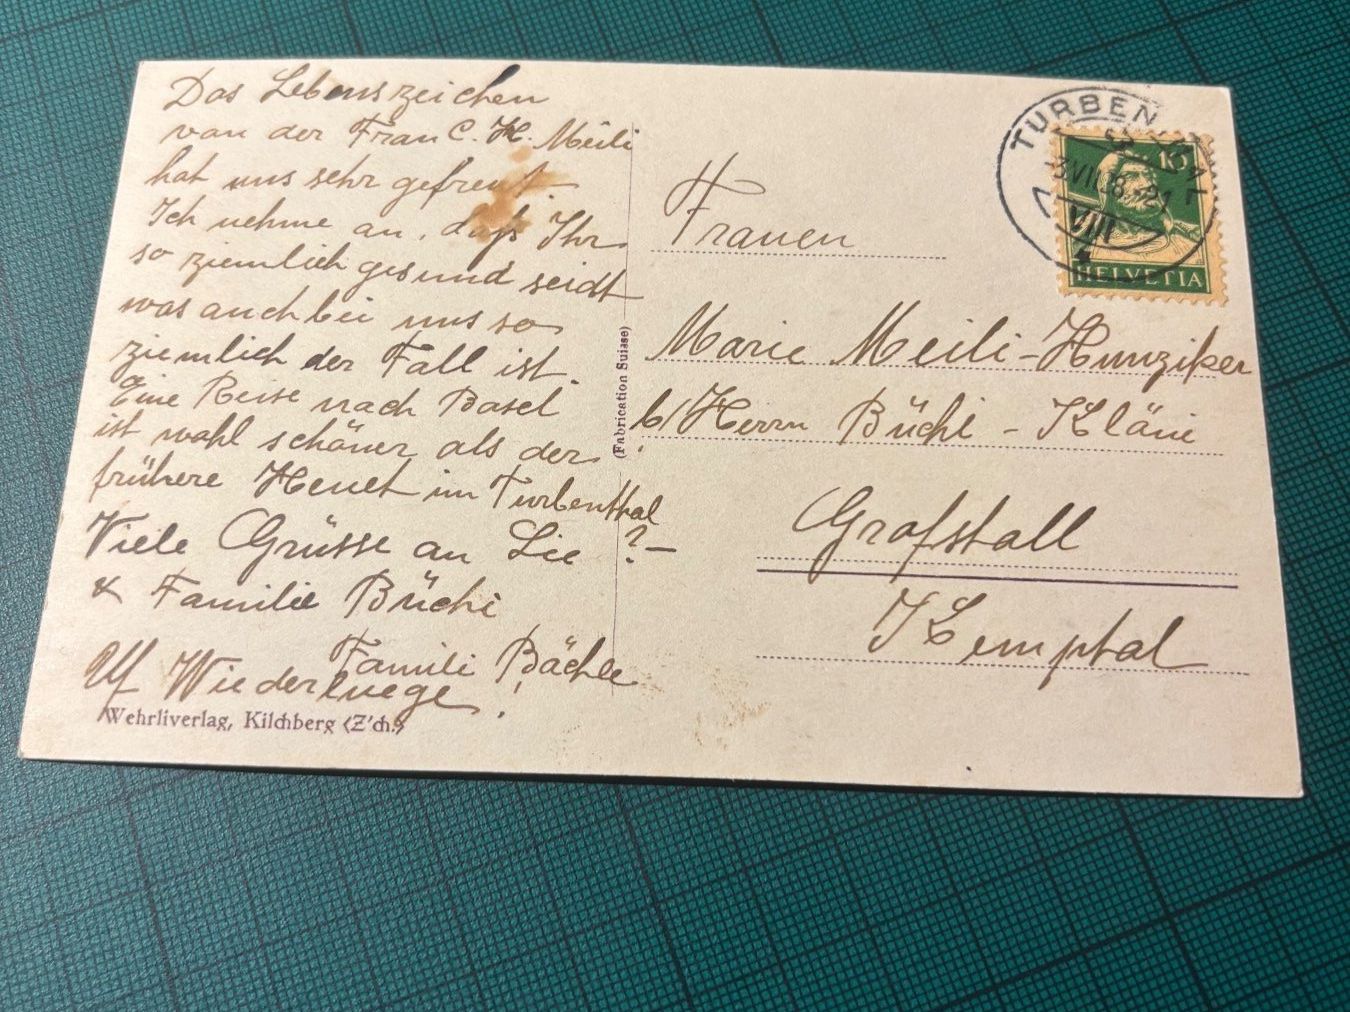 Das Lebenszeichen
von der Frau C. H. Meili
hat uns sehr gefreut
Ich nehme an, daß Ihr
so ziemlich gesund seidt
was auch bei uns so
ziemlich der Fall ist.
Eine Reise nach Basel
ist wohl schöner als der
frühere Heuet im Turbenthal
?-
Viele Grüsse an Sie
& Familie Büchi
Famili Bächle
Uf Wiederluege.
Wehrliverlag, Kilchberg (Z'ch.)
(Fabrication Suisse)
TURBEN
VIII
15
HELVETIA
Frauen
Marie Meili-Hunziker
b/Herrn Büchi - Kläui
Grafstall
Kemptal